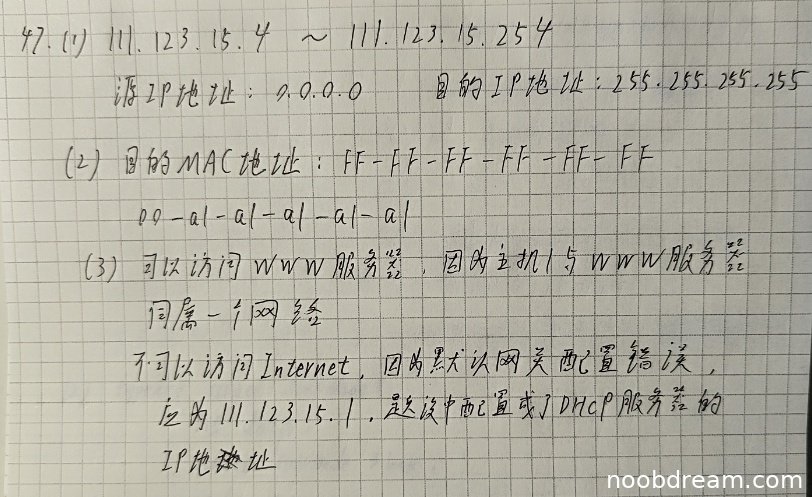 47.(1) 111.123.15.4 ~ 111.123.15.254
源IP地址：0.0.0.0 目的IP地址：255.255.255.255
(2) 目的MAC地址：FF-FF-FF-FF-FF-FF
00-a1-a1-a1-a1-a1
(3) 可以访问WWW服务器，因为主机1与WWW服务器
同属一个网络
不可以访问Internet，因为默认网关配置错误，
应为111.123.15.1，题设中配置成了DHCP服务器的
IP地址
noobdream.com